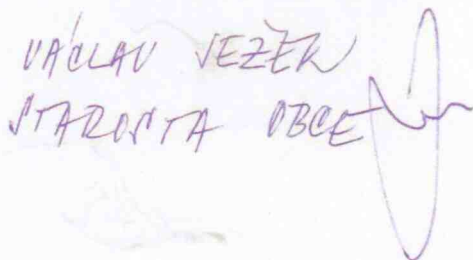 VÁCLAV JEŽEK
STAROSTA OBCE